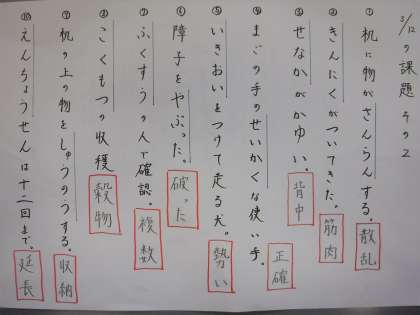 3/12の課題 その2
① 机に物がさんらんする。散乱
② きんにくがついてきた。筋肉
③ せなかがかゆい。背中
④ まごの手のせいかくな使い手。正確
⑤ いきおいをつけて走るぞ。勢い
⑥ 障子をやぶった。破った
⑦ ふくすうの人で確認。複数
⑧ こくもつの収穫 穀物
⑨ 机の上の物をしゅうのうする。収納
⑩ えんちょうせんは十二回まで。延長